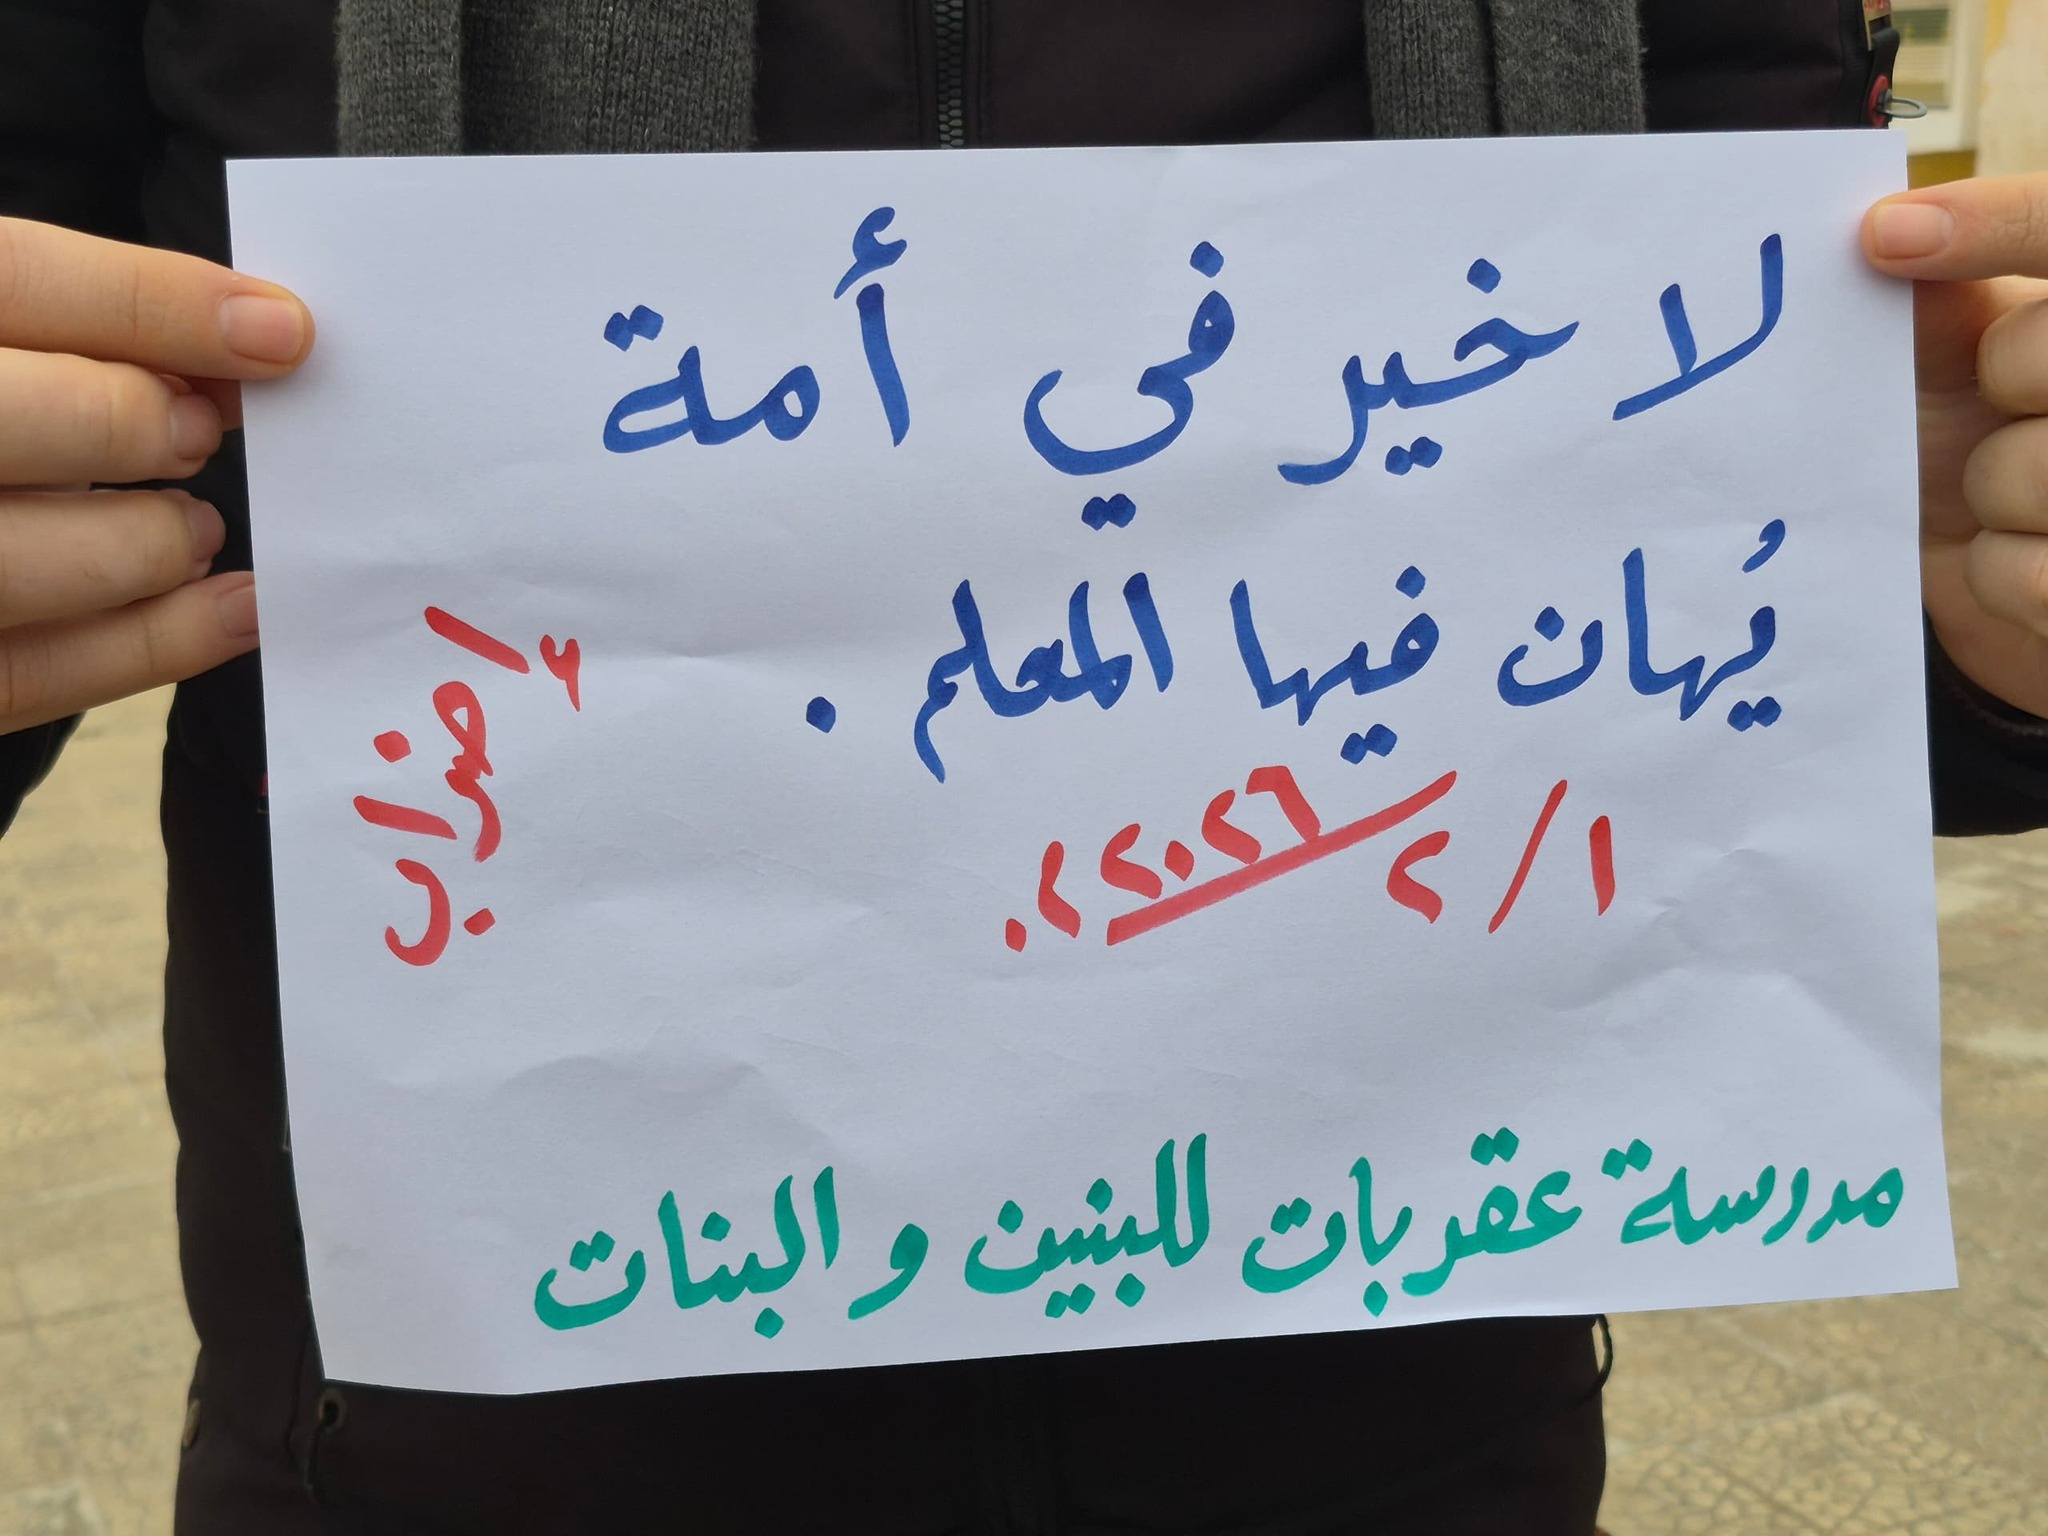 لا خير في أمة
يُهان فيها المعلم .
١/٢/٢٠٢٦م.
إضراب
مدرسة عقربات للبنين و البنات